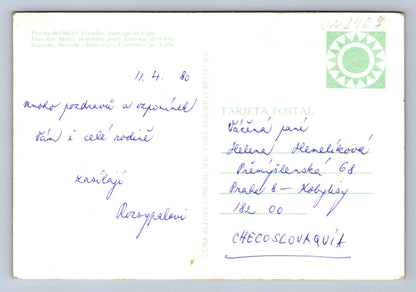 Piscina del Motel Versalles, Santiago de Cuba
Versalles Motel swimming pool, Santiago de Cuba
11. 4. 80
Mnoho pozdravů a vzpomínek
Vám i celé rodině
zasílají
Rozsypalovi
TARJETA POSTAL
Vážená paní
Helena Hemelíková
Přemyšlenská 68
Praha 8 - Kobylisy
182 00
CHECOSLOVAQUIA